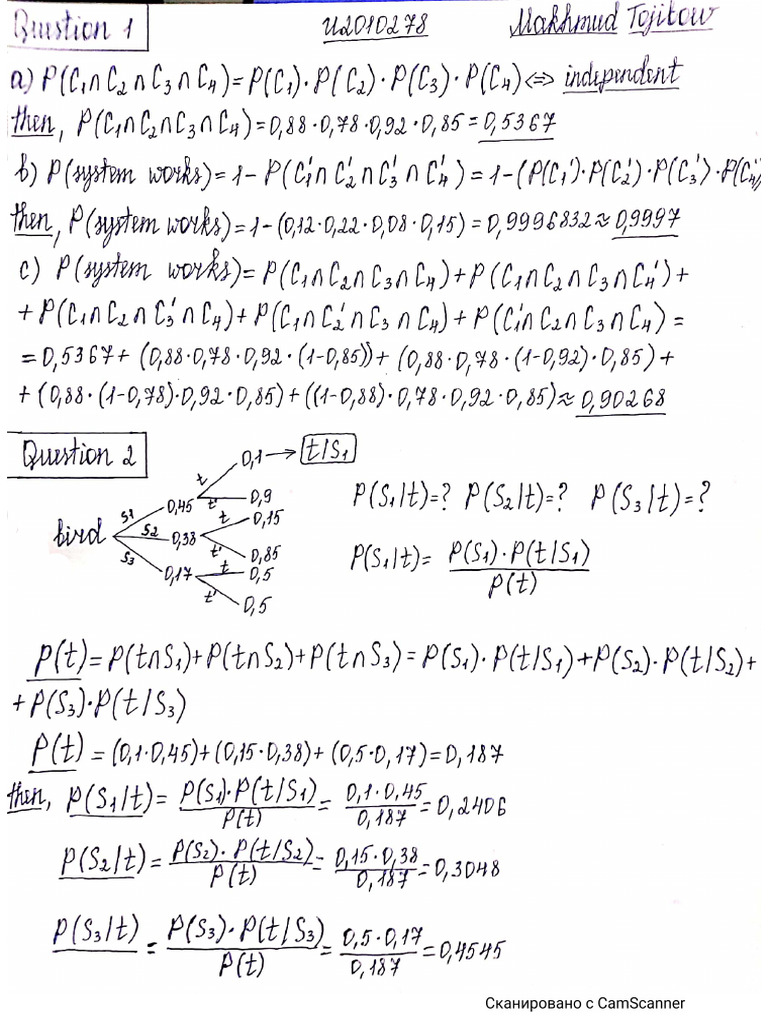 Question 1 U2010278 Makhmud Tojitow
a) P(C₁∩C₂∩C₃∩C₄)=P(C₁)·P(C₂)·P(C₃)·P(C₄)⇔independent
then, P(C₁∩C₂∩C₃∩C₄)=0,88·0,78·0,92·0,85=0,5367
b) P(system works)=1-P(C₁'∩C₂'∩C₃'∩C₄')=1-(P(C₁')·P(C₂')·P(C₃')·P(C₄')
then, P(system works)=1-(0,12·0,22·0,08·0,15)=0,9996832≈0,9997
c) P(system works)=P(C₁∩C₂∩C₃∩C₄)+P(C₁∩C₂∩C₃∩C₄')+
+P(C₁∩C₂∩C₃'∩C₄)+P(C₁∩C₂'∩C₃∩C₄)+P(C₁'∩C₂∩C₃∩C₄)=
=0,5367+(0,88·0,78·0,92·(1-0,85))+(0,88·0,78·(1-0,92)·0,85)+
+(0,88·(1-0,78)·0,92·0,85)+((1-0,88)·0,78·0,92·0,85)≈0,90268
Question 2
t 0,1→t/S₁
S1 0,45 t' 0,9
bird S2 0,38 t 0,15
t' 0,85
S3 0,17 t 0,5
t' 0,5
P(S₁|t)=? P(S₂|t)=? P(S₃|t)=?
P(S₁|t)= P(S₁)·P(t/S₁)
P(t)
P(t)=P(t∩S₁)+P(t∩S₂)+P(t∩S₃)=P(S₁)·P(t/S₁)+P(S₂)·P(t/S₂)+
+P(S₃)·P(t/S₃)
P(t)=(0,1·0,45)+(0,15·0,38)+(0,5·0,17)=0,187
then, P(S₁|t)= P(S₁)·P(t/S₁) = 0,1·0,45 =0,2406
P(t) 0,187
P(S₂|t)= P(S₂)·P(t/S₂) = 0,15·0,38 =0,3048
P(t) 0,187
P(S₃/t) = P(S₃)·P(t/S₃) = 0,5·0,17 =0,4545
P(t) 0,187
Сканировано с CamScanner